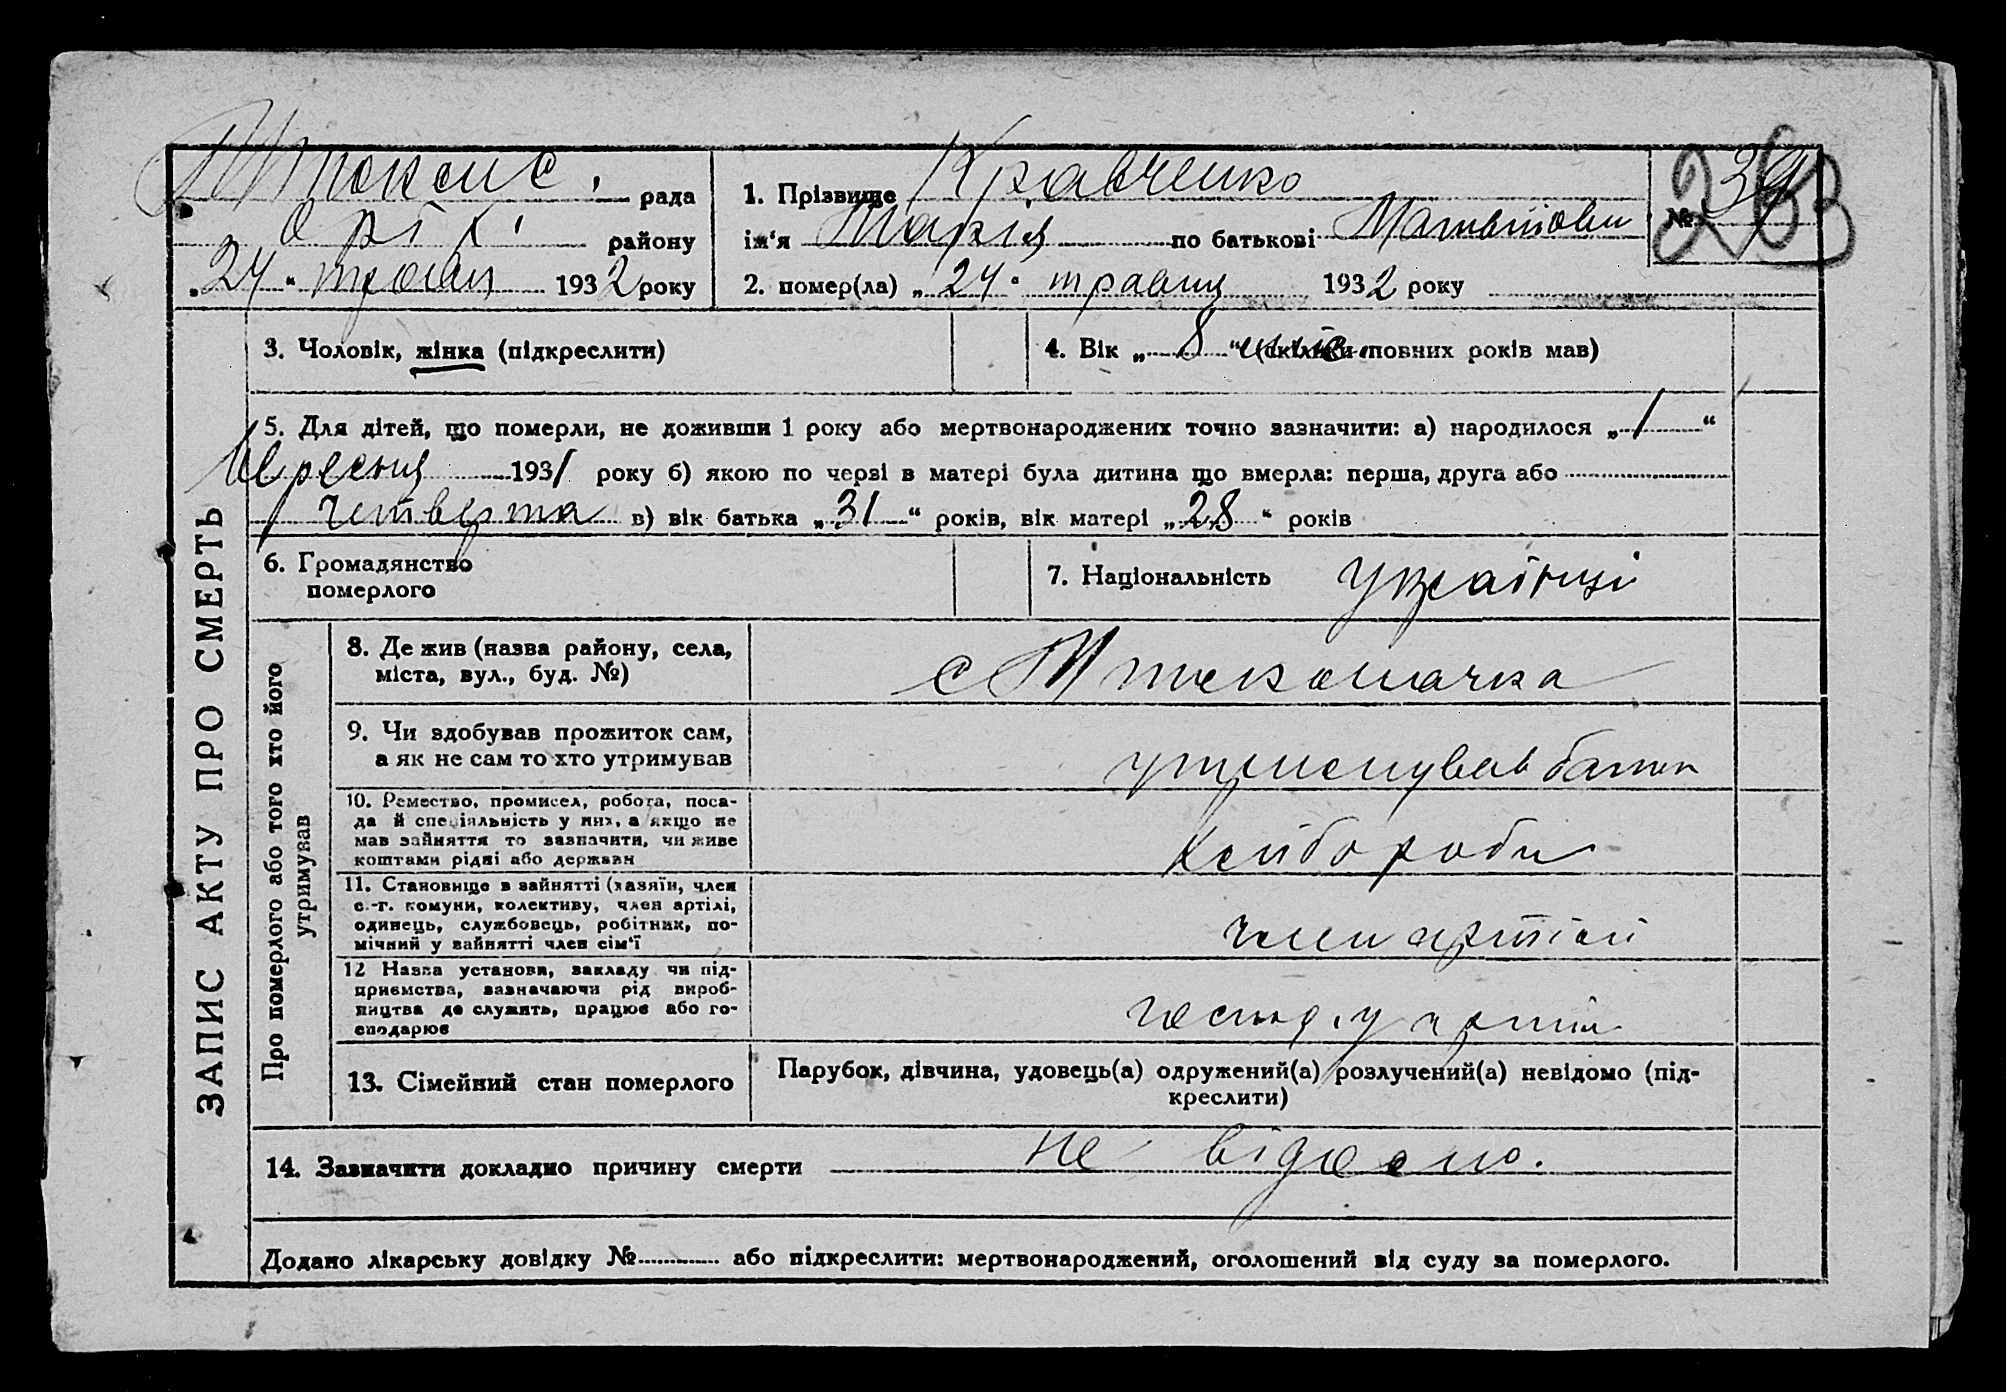 рада
району
„24“ травня 1932 року
1. Прізвище Кравченко
ім'я Марія по батькові
2. помер(ла) „24“ травня 1932 року
№ 39
3. Чоловік, жінка (підкреслити)
4. Вік „8“ (скільки повних років мав)
5. Для дітей, що померли, не доживши 1 року або мертвонароджених точно зазначити: а) народилося „1“
вересня 1931 року б) якою по черзі в матері була дитина що вмерла: перша, друга або
четверта в) вік батька „31“ років, вік матері „28“ років
6. Громадянство
померлого
7. Національність
ЗАПИС АКТУ ПРО СМЕРТЬ
Про померлого або того хто його
утримував
8. Де жив (назва району, села,
міста, вул., буд. №)
с
9. Чи здобував прожиток сам,
а як не сам то хто утримував
10. Ремество, промисел, робота, поса-
да й спеціяльність у них, а якщо не
мав зайняття то зазначити, чи живе
коштами рідні або держави
хлібороб
11. Становище в зайнятті (хазяїн, член
с.-г. комуни, колективу, член артілі,
одинець, службовець, робітник, по-
мічний у зайнятті член сім'ї
член артілі
12 Назва установи, закладу чи під-
приємства, зазначаючи рід вироб-
ництва де служить, працює або го-
сподарює
13. Сімейний стан померлого
Парубок, дівчина, удовець(а) одружений(а) розлучений(а) невідомо (під-
креслити)
14. Зазначити докладно причину смерти не відомо.
Додано лікарську довідку № або підкреслити: мертвонароджений, оголошений від суду за померлого.